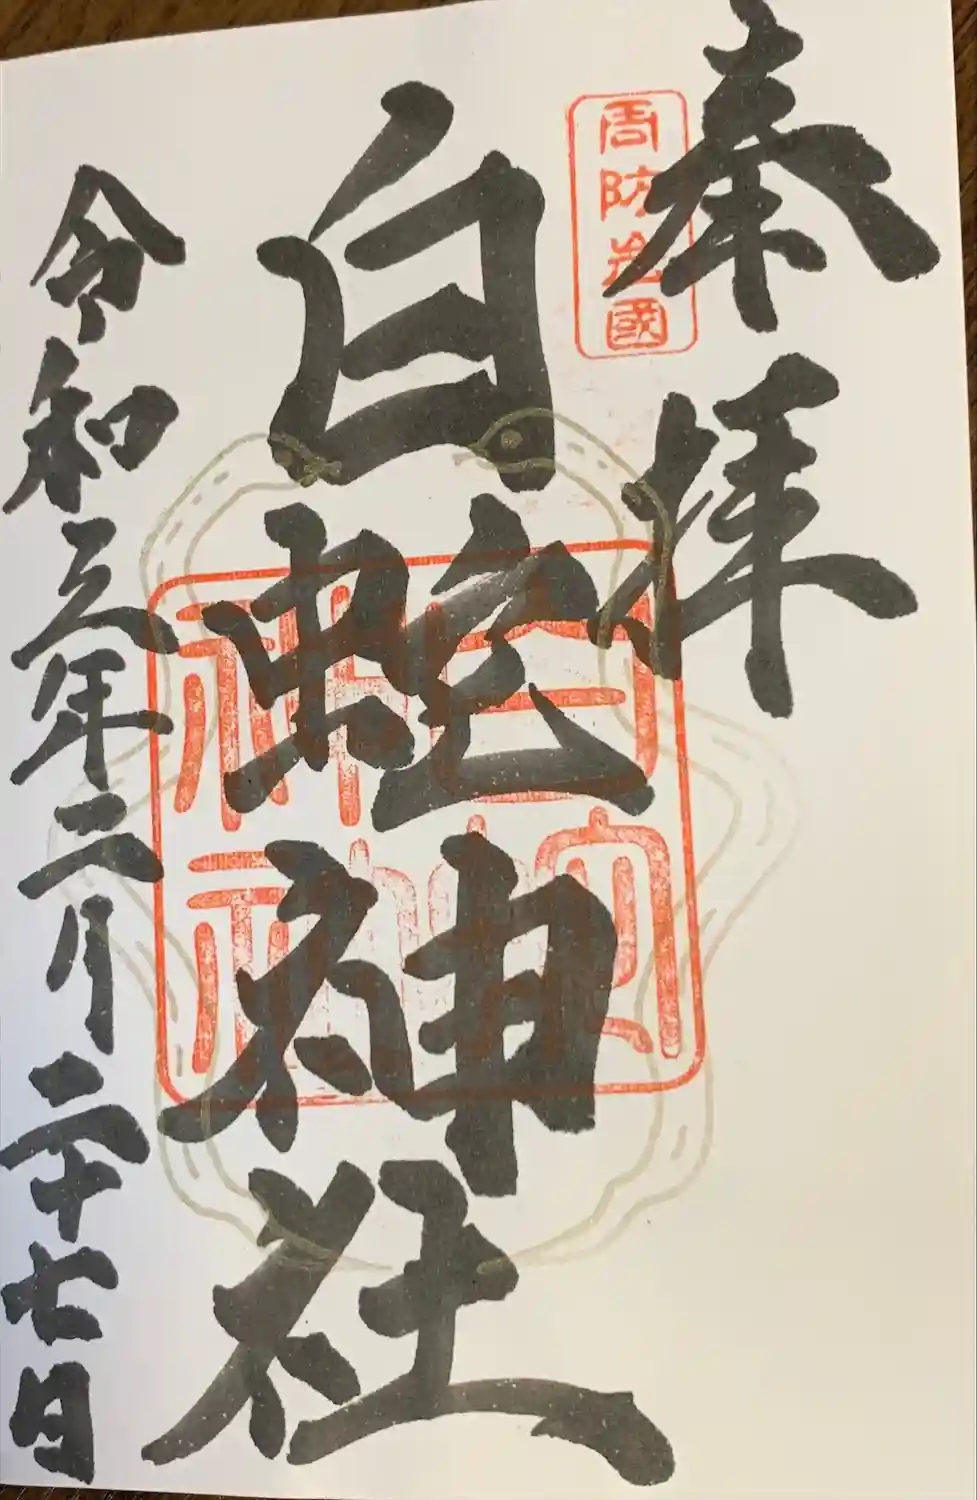 奉拝
周防岩國
白蛇神社
白蛇神社
令和三年二月二十七日